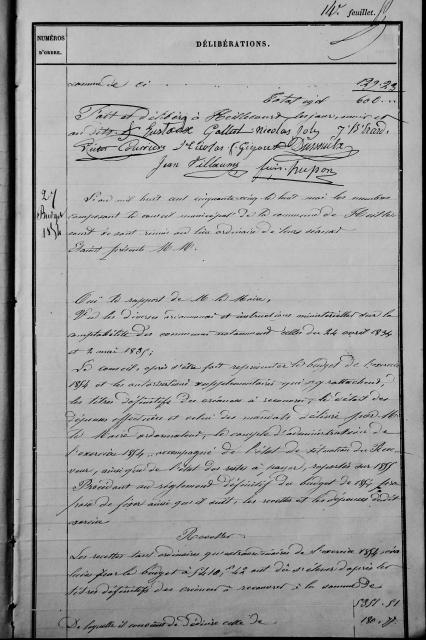 14e feuillet.
NUMÉROS D'ORDRE.
DÉLIBÉRATIONS.
somme de ci 1292
Total égal 600
Fait et délibéré à les jour, mois et
an dits Gustave Nicolas
Nicolas
Jean Villaume
27
Budget
1854
L'an mil huit cent cinquante cinq le huit mai les membres
composant le conseil municipal de la commune de
se sont réunis au lieu ordinaire de leurs séances
Étaient présents M. M.
Ouï le rapport de M. le Maire,
Vu les diverses ordonnances et instructions ministérielles sur la
comptabilité des communes notamment celles du 24 avril 1834
et 2 mai 1835;
Le conseil, après s'être fait représenter le budget de l'exercice
1854 et les autorisations supplémentaires qui s'y rattachent,
les titres définitifs des créances à recouvrer, le détail des
dépenses effectuées et celui des mandats délivrés par M.
le Maire ordonnateur, le compte d'administration de
l'exercice 1854, accompagné de l'état de situation du Rece-
veur, ainsi que de l'état des restes à payer, reportés sur 1855
Procédant au règlement définitif du budget de 1854
de fixer ainsi qu'il suit, les recettes et les dépenses dudit
exercice
Recettes
Les recettes tant ordinaires qu'extraordinaires de l'exercice 1854, éva-
luées par le budget à 5410f 42 ont dû s'élever d'après les
titres définitifs des créances à recouvrer à la somme de
5351. 51
De laquelle il convient de déduire celle de 180.